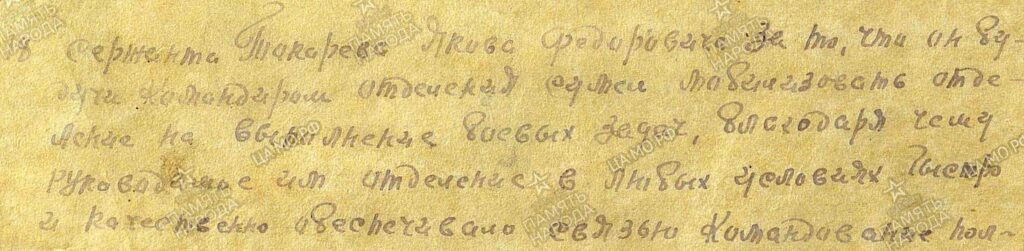 18 Сержанта Токарева Якова Федоровича За то, что он бу-
дучи командиром отделения сумел мобилизовать отде-
ление на выполнение боевых задач, благодаря чему
руководимое им отделение в любых условиях быстро
и качественно обеспечивало связью Командование пол-